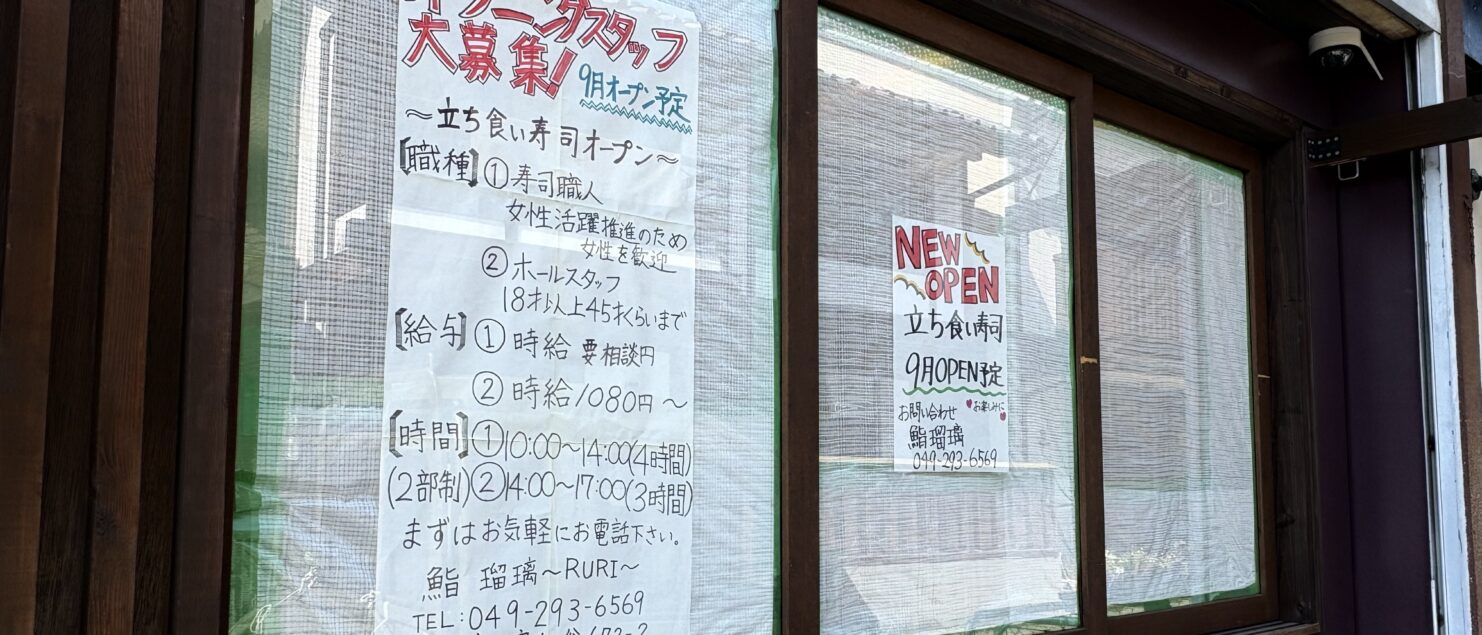 オープニングスタッフ
大募集!
9月オープン予定
～立ち食い寿司オープン～
[職種] ①寿司職人
女性活躍推進のため
女性を歓迎
②ホールスタッフ
18才以上45才くらいまで
[給与] ①時給 要相談円
②時給1080円～
[時間] ①10:00～14:00(4時間)
(2部制) ②14:00～17:00(3時間)
まずはお気軽にお電話下さい。
鮨 瑠璃～RURI～
TEL:049-293-6569
NEW
OPEN
立ち食い寿司
9月OPEN予定
お楽しみに
お問い合わせ
鮨瑠璃
049-293-6569